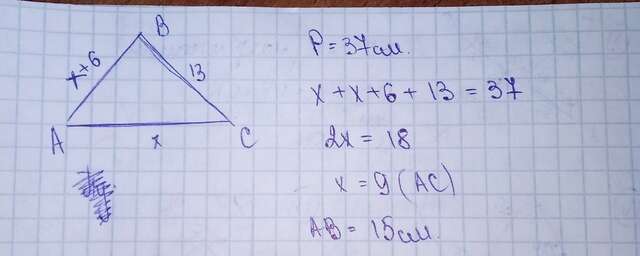 B
x+6
13
A
x
C
P = 37см.
x + x + 6 + 13 = 37
2x = 18
x = 9 (AC)
AB = 15см.